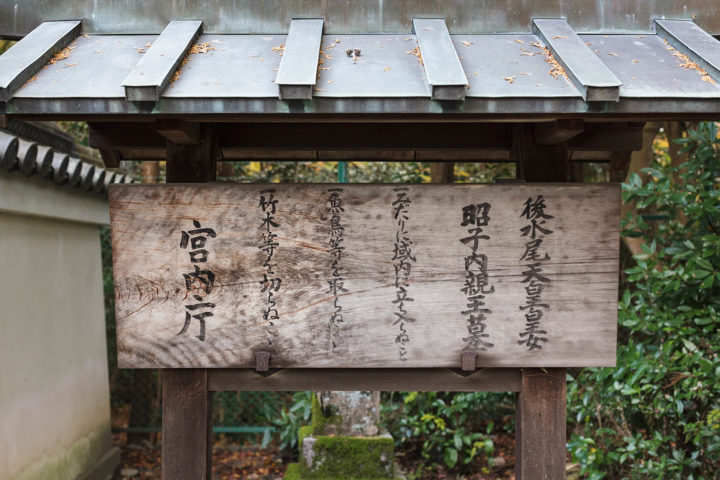 後水尾天皇皇女
昭子内親王墓
一みだりに域内に立ち入らぬこと
一魚鳥等を取らぬこと
一竹木等を切らぬこと
宮内庁